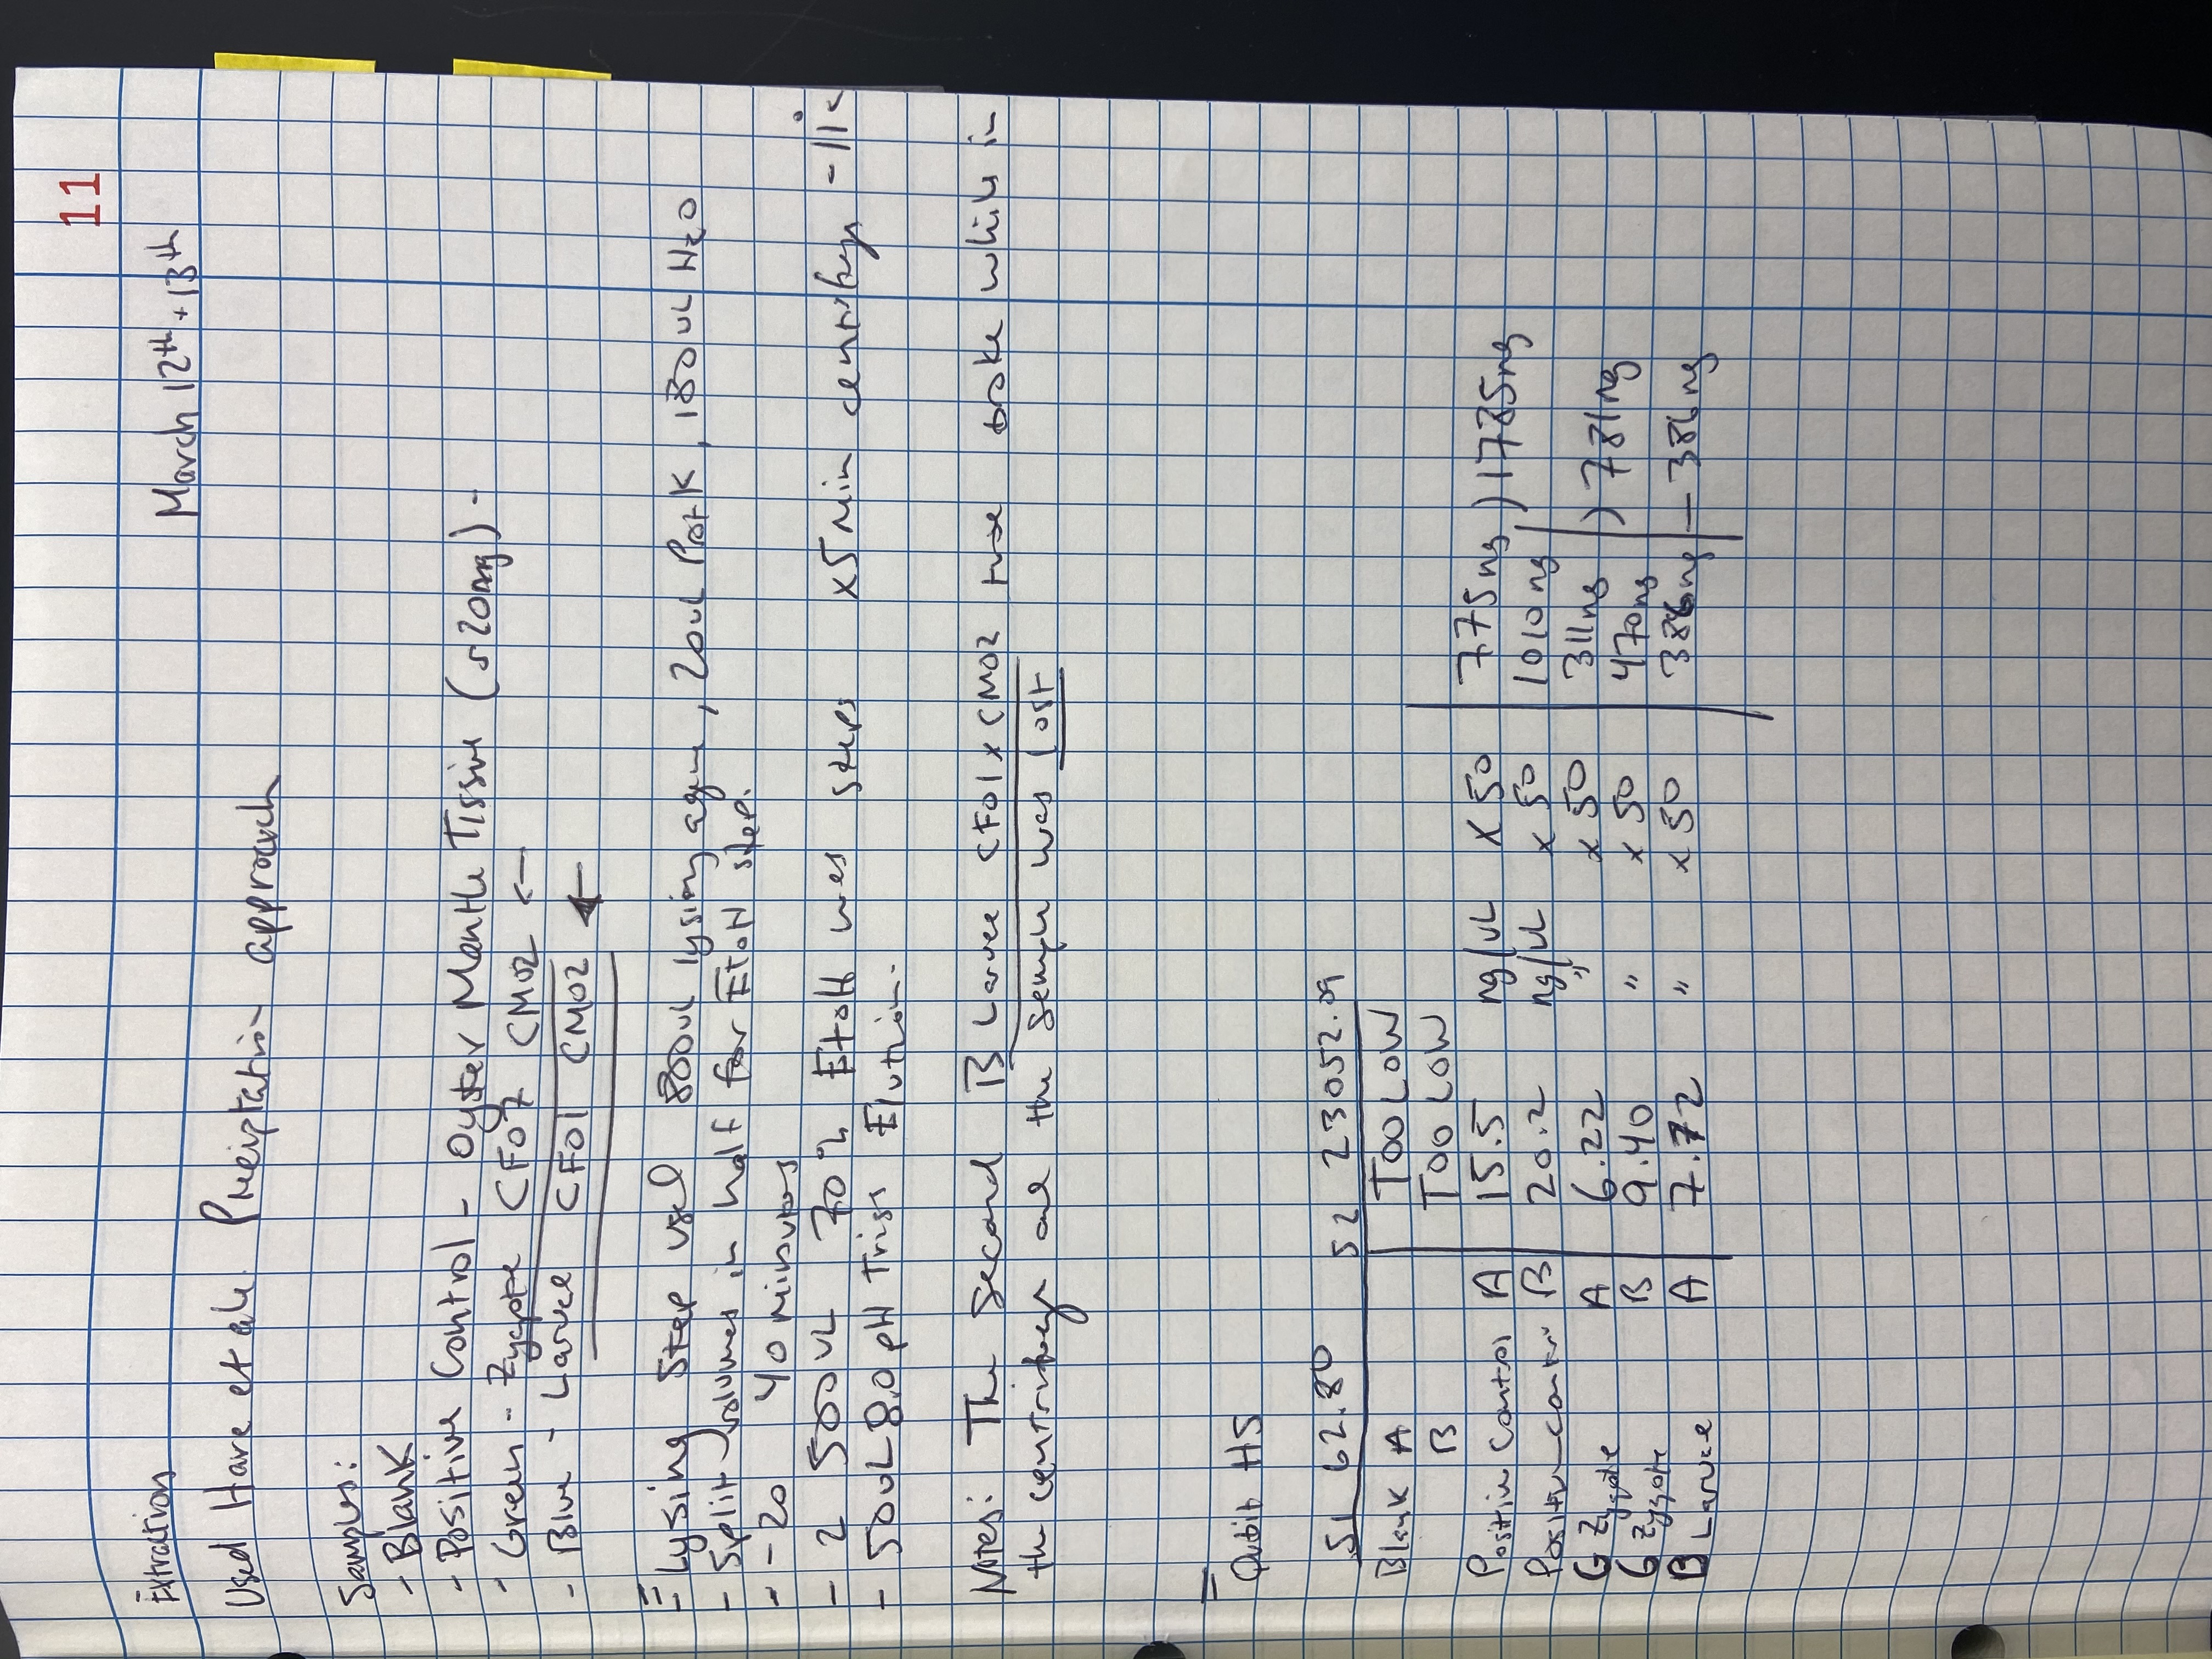 11
Extraction
March 12th + 13th
Used Hare et al. Preciptation approach
Samples:
- Blank
- Positive Control - Oyster Mantle Tissue (≤20mg) -
- Green - Zygote CF07 CM02 ←
- Blue - Larvae CF01 CM02 ←
- Lysing step used 800uL lysing agent, 20uL Prot K, 180uL H2O
- Split volumes in half for EtOH step.
- -20 40 minutes
- 2 500uL 70% EtOH was steps x5 min centrifuge
- 50uL 8.0 pH Triss Elution.
Notes: The Second B Larvae CF01 x CM02 tube broke while in
the centrifuge and the sample was lost
Qubit HS
S1 62.80 S2 23052.09
Blank A TOO LOW
B TOO LOW
Positive Control A 15.5 ng/uL x 50 775ng ) 1785ng
Positive control B 20.2 ng/uL x 50 1010ng
G Zygote A 6.22 " x 50 311ng ) 781ng
G Zygote B 9.40 " x 50 470ng
B Larvae A 7.72 " x 50 386ng — 386ng